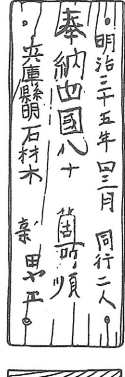 明治三十五年四三月 同行二人
奉納四國八十 箇所順
兵庫縣明石材木 新田や平